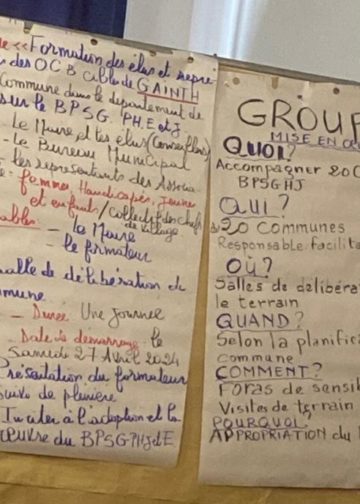 Formation des élus et repré-
des OCB cible de GAINTH
Commune dans le département de
sur le BPSG PH,E etJ
- Le Maire et les élus (Conseillers)
- Le Bureau Municipal
les représentants des Associa-
femmes, Handicapés, Jeunes
et enfants/Collectif des Chefs
de village
- le Maire
- le formateur
salle de délibération de
mmune
- Durée Une Journée
Date de démarrage le
Samedi 27 Avril 2024
Présentation du formateur
suivie de plénière
Inviter à l'adoption et la
œuvre du BPSGPHJetE
GROUP
MISE EN
QUOI?
Accompagner 20 C
BPSGHJ
QUI?
20 Communes
Responsable facilita
OÙ?
Salles de délibéra
le terrain
QUAND?
Selon la planific
commune
COMMENT?
Foras de sensib
Visites de terrain
POURQUOI
APPROPRIATION du